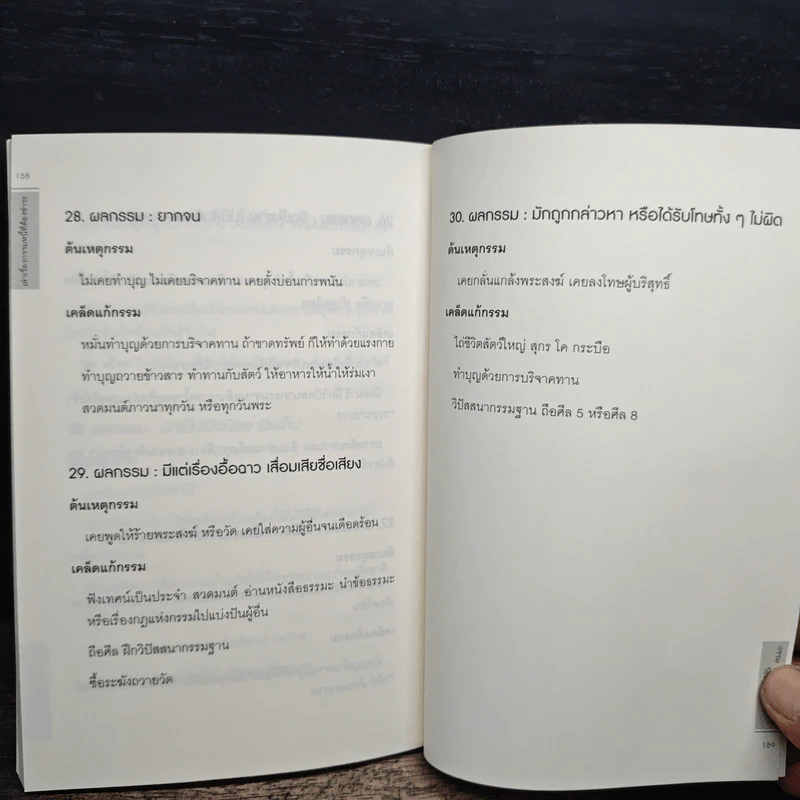 158
เล่าเรื่องกรรมหนี้ที่ต้องชำระ
28. ผลกรรม : ยากจน
ต้นเหตุกรรม
ไม่เคยทำบุญ ไม่เคยบริจาคทาน เคยตั้งบ่อนการพนัน
เคล็ดแก้กรรม
หมั่นทำบุญด้วยการบริจาคทาน ถ้าขาดทรัพย์ ก็ให้ทำด้วยแรงกาย
ทำบุญถวายข้าวสาร ทำทานกับสัตว์ ให้อาหารให้น้ำให้ร่มเงา
สวดมนต์ภาวนาทุกวัน หรือทุกวันพระ
29. ผลกรรม : มีแต่เรื่องอื้อฉาว เสื่อมเสียชื่อเสียง
ต้นเหตุกรรม
เคยพูดให้ร้ายพระสงฆ์ หรือวัด เคยใส่ความผู้อื่นจนเดือดร้อน
เคล็ดแก้กรรม
ฟังเทศน์เป็นประจำ สวดมนต์ อ่านหนังสือธรรมะ นำข้อธรรมะ
หรือเรื่องกฎแห่งกรรมไปแบ่งปันผู้อื่น
ถือศีล ฝึกวิปัสสนากรรมฐาน
ซื้อระฆังถวายวัด
30. ผลกรรม : มักถูกกล่าวหา หรือได้รับโทษทั้ง ๆ ไม่ผิด
ต้นเหตุกรรม
เคยกลั่นแกล้งพระสงฆ์ เคยลงโทษผู้บริสุทธิ์
เคล็ดแก้กรรม
ไถ่ชีวิตสัตว์ใหญ่ สุกร โค กระบือ
ทำบุญด้วยการบริจาคทาน
วิปัสสนากรรมฐาน ถือศีล 5 หรือศีล 8
159